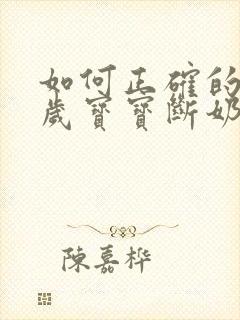 如何正確的
歲寶寶斷奶
陳嘉樺